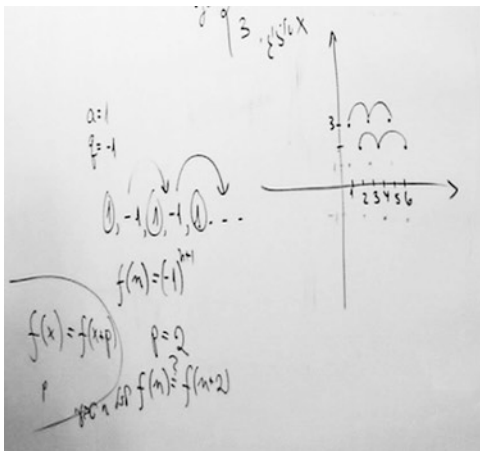 a=1
q=-1
1, -1, 1, -1, 1, ...
f(n) = (-1)^{n+1}
f(x) = f(x+p)
p = 2
p
f(n) ≟ f(n+2)
3
1 2 3 4 5 6